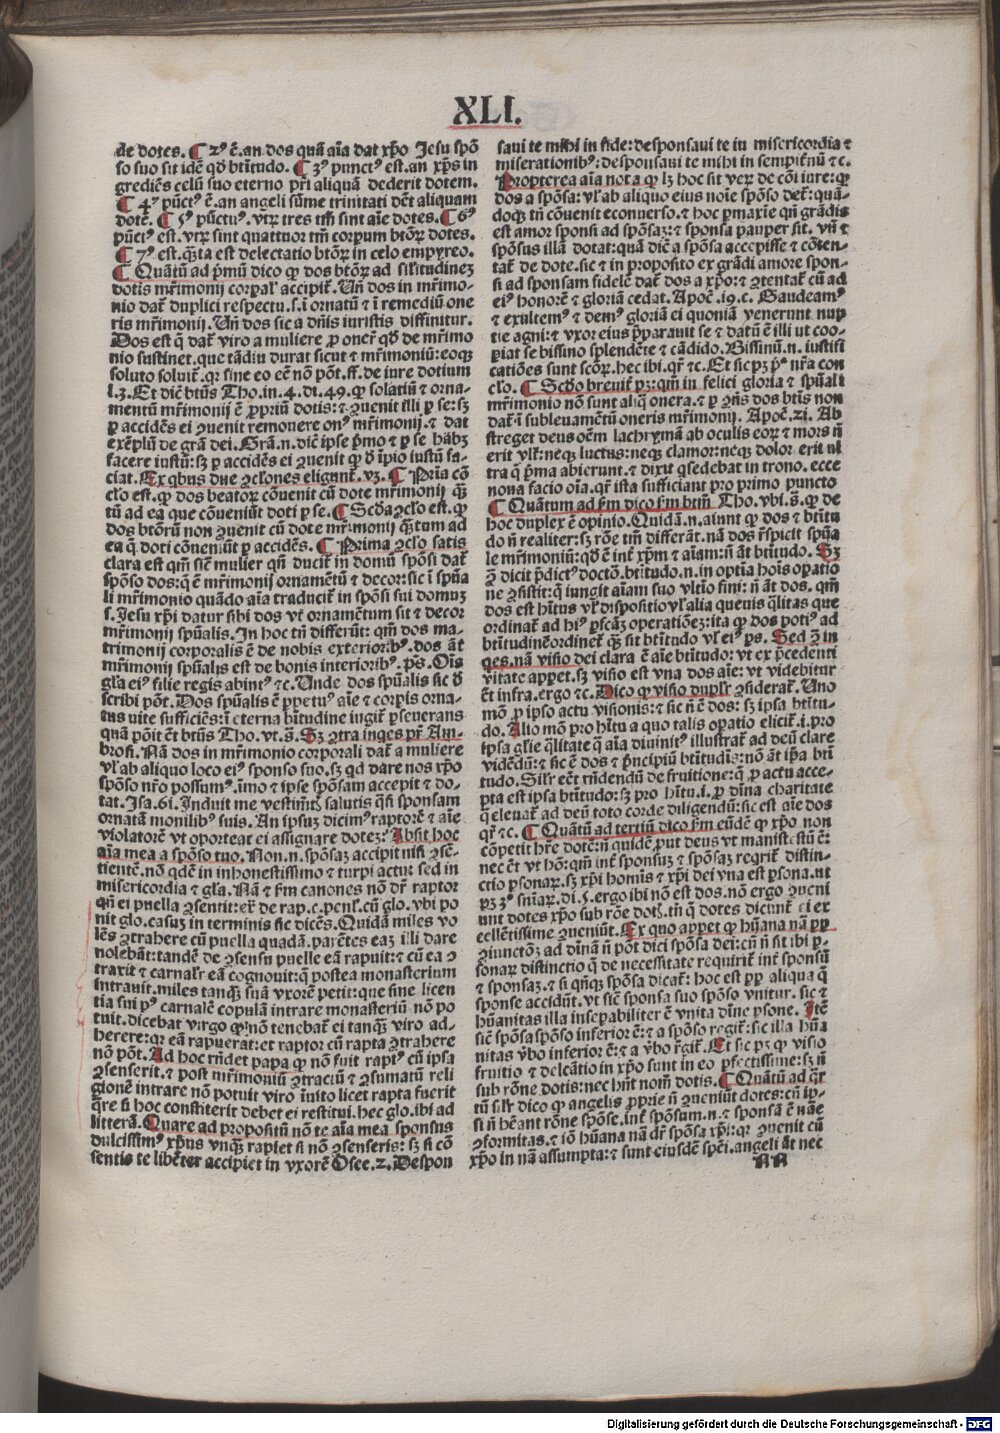 XLI.
de dotes. ¶ 2ꝰ ē. an dos quā aīa dat xp̄o Jesu spō
so suo sit idē qd̄ btītudo. ¶ 3ꝰ punctꝰ est. an xp̄s in
grediēs celū suo eterno pr̄i aliquā dederit dotem.
¶ 4ꝰ pūctꝰ ē. an angeli sūme trinitati dēt aliquam
dotē. ¶ 5ꝰ pūctꝰ. vtꝝ tres tm̄ sint aīe dotes. ¶ 6ꝰ
pūctꝰ est. vtꝝ sint quattuor tm̄ corꝑum btōꝝ dotes.
¶ 7ꝰ est. q̄sta est delectatio btōꝝ in celo empyreo.
¶ Quātū ad p̄mū dico ꝙ dos btōꝝ ad sil'itudinez
dotis mr̄imonij corꝑal' accipit̄. Un̄ dos in mr̄imo-
nio dat̄ duplici respectu. s. ī ornatū ⁊ ī remediū one
ris mr̄imonij. Un̄ dos sic a dn̄is iuristis diffinitur.
Dos est q̄ dat̄ viro a muliere ꝓ oner̄ qd̄ de mr̄imo
nio sustinet. que tādiu durat sicut ⁊ mr̄imoniū: eoqꝫ
soluto soluit̄. qꝛ sine eo eē nō pōt. ff. de iure dotium
l. 3. Et dic̄ btūs Tho. in. 4. di. 49. ꝙ solatiū ⁊ orna-
mentū mr̄imonij ē ꝓpriū dotis: ⁊ ꝯuenit illi ꝑ se: sꝫ
ꝑ accidēs ei ꝯuenit remouere onꝰ mr̄imonij. ⁊ dat
exēplū de grā dei. Grā. n. dic̄ ipse p̄mo ⁊ ꝑ se habꝫ
facere iustū: sꝫ ꝑ accidēs ei ꝯuenit ꝙ d̄ īpio iustū fa-
ciat. Ex qbus due ꝯclōnes eligunt̄. vꝫ. ¶ Pria cō
clo est. ꝙ dos beatoꝝ cōuenit cū dote mr̄imonij q̄ꝫ
tū ad ea que cōueniūt doti ꝑ se. ¶ Scd̄a ꝯclo est. ꝙ
dos btōrū non ꝯuenit cū dote mr̄imonij q̄ꝫtum ad
ea q̄ doti cōueniūt ꝑ accidēs. ¶ Prima ꝯclo satis
clara est qm̄ sic̄ mulier qn̄ ducit̄ in domū spōsi dat̄
spōso dos: q̄ ē mr̄imonij ornamētū ⁊ decor: sic ī spūa
li mr̄imonio quādo aīa traducit̄ in spōsi sui domuꝫ
s. Jesu xp̄i datur sibi dos vt ornamētum sit ⁊ decor
mr̄imonij spūalis. In hoc tn̄ differūt: qm̄ dos ma-
trimonij corporalis ē de nobis exterioribꝰ. dos āt
mr̄imonij spūalis est de bonis interioribꝰ. p̄s. Oīs
gl'a eiꝰ filie regis abintꝰ ⁊c. Unde dos spūalis sic d̄
scribi pōt. Dos spūalis ē ꝑpetuꝰ aīe ⁊ corꝑis orna-
tus uite sufficiēs: ī eterna bt̄itudine iugit̄ ꝑseuerans
quā pōit ēt btūs Tho. vt. s̄. Sꝫ ꝯtra inqes pr̄ Am-
brosi. Nā dos in mr̄imonio corporali dat̄ a muliere
vl' ab aliquo loco eiꝰ sponso suo. sꝫ qd dare nos xp̄o
spōso nr̄o possumꝰ. īmo ⁊ ipse spōsam accepit ⁊ do-
tat. Isa. 61. Induit me vestim̄tis salutis q̄si sponsam
ornatā monilibꝰ suis. An ipsuꝫ dicimꝰ raptorē ⁊ aīe
violatorē vt oporteat ei assignare dotez? Absit hoc
aīa mea a spōso tuo. Non. n. spōsaꝫ accipit nisi ꝯsē-
tientē. nō qdē in inhonestissimo ⁊ turpi actu: sed in
misericordia ⁊ gl'a. Nā ⁊ s̄m canones nō dr̄ raptor
qn̄ ei puella ꝯsentit: ex̄ de rap. c. penl̄. cū glo. vbi po
nit glo. casuꝫ in terminis sic dicēs. Quidā miles vo
lēs ꝯtrahere cū puella quadā. parētes eaꝫ illi dare
nolebāt: tandē de ꝯsensu puelle eā rapuit: ⁊ cū ea ꝯ
traxit ⁊ carnalr̄ eā cognouit: q̄ postea monasterium
intrauit. miles tanq̄ꝫ suā vxorē petit: que sine licen
tia sui pꝰ carnalē copulā intrare monasteriū nō po
tuit. dicebat virgo ꝙ nō tenebat̄ ei tanq̄ꝫ viro ad-
herere: qꝛ eā rapuerat: et raptor cū rapta ꝯtrahere
nō pōt. Ad hoc rn̄det papa ꝙ nō fuit raptꝰ cū ipsa
ꝯsenserit. ⁊ post mr̄imoniū ꝯtractū ⁊ ꝯsumatū reli
gionē intrare nō potuit viro īuito licet rapta fuerit
q̄re si hoc constiterit debet ei restitui. hec glo. ibi ad
litterā. Quare ad propositū nō te aīa mea sponsus
dulcissimꝰ xp̄us vnq̄ꝫ rapiet si nō ꝯsenseris: sꝫ si cō
sentis te libēter accipiet in vxorē Osee. 2. Despon
saui te mihi in fide: desponsaui te in misericordia ⁊
miserationibꝰ: desponsaui te mihi in sempit̄nū ⁊ c.
Propterea aīa nota ꝙ lꝫ hoc sit verꝝ de cōi iure: ꝙ
dos a spōsa: vl' ab aliquo eius noīe spōso det̄: quā-
doqꝫ tn̄ cōuenit econuerso. ⁊ hoc ꝓmaxīe qn̄ grādis
est amor sponsi ad spōsaꝫ: ⁊ sponsa pauper sit. vn̄ ⁊
spōsus illā dotat: quā dic̄ a spōsa accepisse ⁊ cōten-
tat̄ de dote. sic ⁊ in proposito ex grādi amore spon-
si ad sponsam fidelē dat̄ dos a xp̄o: ⁊ ꝯtentat̄ cū ad
eiꝰ honorē ⁊ gloriā cedat. Apoc̄. 19. c. Gaudeamꝰ
⁊ exultemꝰ ⁊ demꝰ gloriā ei quoniā venerunt nup
tie agni: ⁊ vxor eiuꝰ p̄parauit se ⁊ datū ē illi ut coo-
ꝑiat se bissino splendēte ⁊ cādido. Bissinū. n. iustifi
catiōes sunt scōꝝ. hec ibi. qr̄ ⁊c. Et sic pꝫ pꝰ nr̄a con
clo. ¶ Scd̄o breuit̄ pꝫ: qm̄ in felici gloria ⁊ spūali
mr̄imonio nō sunt aliq̄ onera. ⁊ ꝑ ꝯn̄s dos btīs non
dat̄ ī subleuamētū oneris mr̄imonij. Apoc̄. 21. Ab
sterget deus oēm lachrymā ab oculis eoꝝ ⁊ mors n̄
erit vl't̄: neqꝫ luctus: neqꝫ clamor: neqꝫ dolor erit ul
tra q̄ p̄ma abierunt. ⁊ dixit q sedebat in trono. ecce
noua facio oīa. qr̄ ista sufficiant pro primo puncto
¶ Quātum ad s̄m dico s̄m btm̄ Tho. vbi. s̄. ꝙ de
hoc duplex ē opinio. Quidā. n. aiunt ꝙ dos ⁊ btītu
do n̄ realiter: sꝫ rōe tm̄ differāt. nā dos r̄spicit spūa
le mr̄imoniū: qd̄ ē int̄ xp̄m ⁊ aīam: n̄ āt btītudo. Sꝫ
ꝯ dicit p̄dictꝰ doctō. btītudo. n. in optīa hoīs oꝑatio
ne ꝯsistit: q̄ iungit aīam suo vltīo fini: n̄ āt dos. qm̄
dos est hītus vl' dispositio vl' alia queuis q̄litas que
ordinat̄ ad hiꝰ ꝑfcāꝫ operatiōeꝫ: ita ꝙ dos potiꝰ ad
btītudinē ordinet̄ q̄ꝫ sit btītudo vl' eiꝰ ꝑs. Sed ꝯ in
qes. nā visio dei clara ē aīe btītudo: vt ex p̄cedenti
vitate appet. sꝫ visio est vna dos aīe: vt videbitur
ēt infra. ergo ⁊c. Dico ꝙ visio duplr̄ ꝯsiderat̄. Uno
mō ꝓ ipso actu visionis: ⁊ sic n̄ ē dos: sꝫ ipsa btītu-
do. Alio mō pro hītu a quo talis oꝑatio elicit̄. i. pro
ipsa gl'ie q̄litate q̄ aīa diuinitꝰ illustrat̄ ad deū clare
vidēdū: ⁊ sic ē dos ⁊ p̄ncipiū btītudīs: nō āt ip̄a btī
tudo. Sil'r eēt rn̄dendū de fruitione: q̄ ꝓ actu acce-
pta est ipsa btītudo: sꝫ pro hītu. i. ꝓ dīna charitate
q̄ eleuat̄ ad deū toto corde diligendū: sic est aīe dos
qr̄ ⁊c. ¶ Quātū ad tertiū dico s̄m eūdē ꝙ xp̄o non
cōpetit hr̄e dotē: n̄ quidē ꝓut deus vt manifestū ē:
nec ēt vt hō: qm̄ int̄ sponsuꝫ ⁊ spōsaꝫ reqrit̄ distin-
ctio ꝑsonaꝝ. sꝫ xp̄i homīs ⁊ xp̄i dei vna est ꝑsona. ut
pꝫ 3ꝰ sniaꝝ. di. 5. ergo ibi nō est dos. nō ergo ꝯueni
unt dotes xp̄o sub rōe dotꝭ. tn̄ q̄ dotes dicunt̄ ei ex
cellētissime ꝯueniūt. Ex quo appet ꝙ hūana nā ꝓp
ꝯiunctōꝫ ad dīnā n̄ pōt dici spōsa dei: cū n̄ sit ibi ꝑ-
sonaꝝ distinctio q̄ de necessitate requirit̄ int̄ sponsū
⁊ sponsaꝫ. ⁊ si qn̄qꝫ spōsa dicat̄: hoc est ꝓp aliqua q̄
sponse accidūt. vt sic̄ sponsa suo spōso vnitur. sic ⁊
hūanitas illa insepabiliter ē vnita dīne ꝑsone. Itē
sic̄ spōsa spōso inferior ē: ⁊ a spōso regit̄: sic illa hūa
nitas v̄bo inferior ē: ⁊ a v̄bo r̄git̄. Et sic pꝫ ꝙ visio
fruitio ⁊ delcātio in xp̄o sunt in eo ꝑfectissime: sꝫ n̄
sub rōne dotis: nec hn̄t nom̄ dotis. ¶ Quātū ad qr̄
tū sil'r dico ꝙ angelis ꝓprie n̄ ꝯueniūt dotes: cū ip-
si n̄ hēant rōne spōse. int̄ spōsum. n. ⁊ sponsā ē nāe
ꝯformitas. ⁊ iō hūana nā dr̄ spōsa xp̄i: qꝛ ꝯuenit cū
xp̄o in nā assumpta: ⁊ sunt eiusdē spēi. angeli āt nec
NN
Digitalisierung gefördert durch die Deutsche Forschungsgemeinschaft - DFG